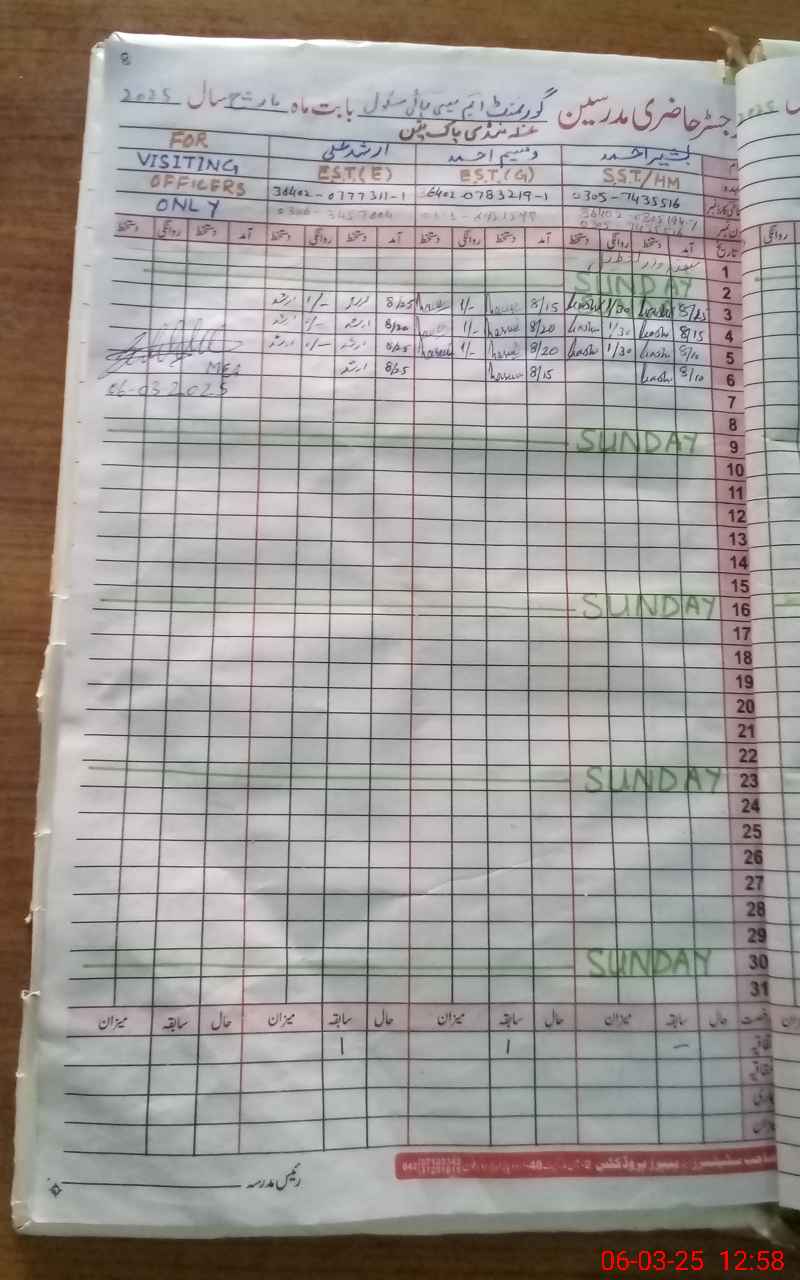 8
رجسٹر حاضری مدرسین گورنمنٹ ایم سی ہائی سکول بابت ماہ مارچ سال 2025
غلہ منڈی پاک پتن
بشیر احمد وسیم احمد ارشد علی FOR
SST/HM E.S.T.(G) E.S.T.(E) VISITING
0305-7435516 36402-0783219-1 36402-0777311-1 OFFICERS
ONLY
تاریخ آمد دستخط روانگی دستخط آمد دستخط روانگی دستخط آمد دستخط روانگی دستخط آمد دستخط روانگی دستخط
1
2 SUNDAY
3 8/25 1/30 8/15 1/- 8/25 ارشد 1/- ارشد
4 8/15 1/30 8/20 1/- 8/20 ارشد 1/- ارشد
5 8/10 1/30 8/20 1/- 8/25 ارشد 1/- ارشد
6 8/10 8/15 8/25 ارشد MEA
06-03-2025
7
8
9 SUNDAY
10
11
12
13
14
15
16 SUNDAY
17
18
19
20
21
22
23 SUNDAY
24
25
26
27
28
29
30 SUNDAY
31
رخصت حال سابقہ میزان حال سابقہ میزان حال سابقہ میزان حال سابقہ میزان
– 1 1
رئیس مدرسہ
06-03-25 12:58